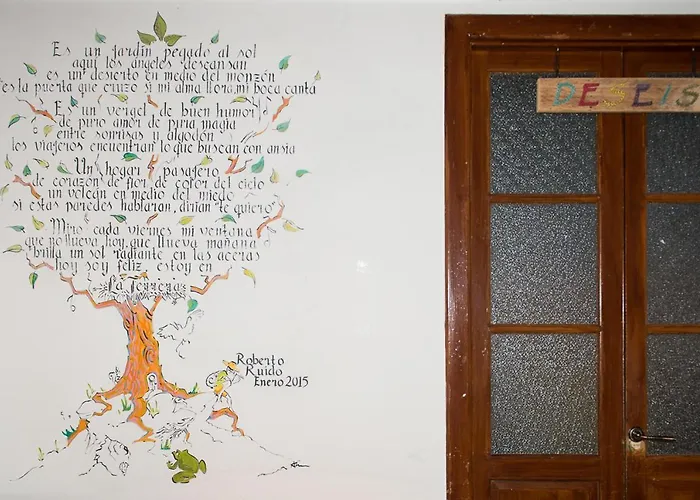 Es un jardín pegado al sol
aquí los ángeles descansan
es un desierto en medio del monzón
es la puerta que cruzo si mi alma llora, mi boca canta
Es un vergel de buen humor
de puro amor de pura magia
entre sonrisas y algodón
los viajeros encuentran lo que buscan con ansia
Un hogar pasajero
de corazón de flor de color del cielo
un volcán en medio del miedo
si estas paredes hablaran, dirían "te quiero"
Miro cada viernes mi ventana
que no llueva hoy, que llueva mañana
brilla un sol radiante en las aceras
hoy soy feliz estoy en
Roberto
Ruido
Enero 2015
DESEIS